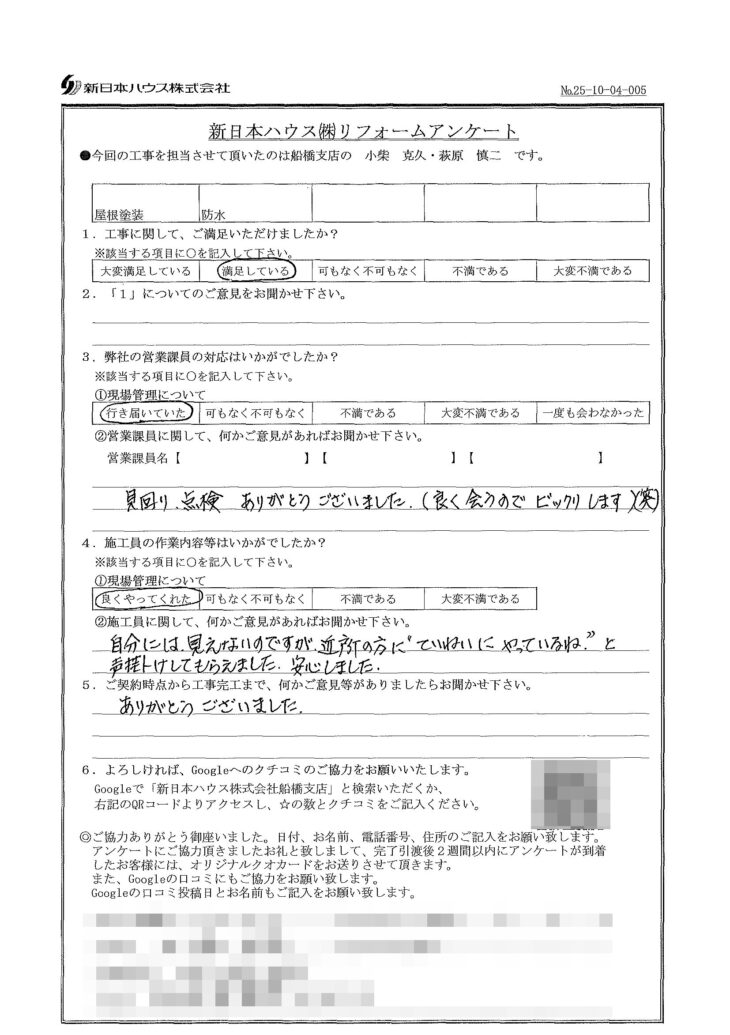 新日本ハウス株式会社
№25-10-04-005
新日本ハウス㈱リフォームアンケート
●今回の工事を担当させて頂いたのは船橋支店の 小柴 克久・萩原 慎二 です。
屋根塗装 防水
1．工事に関して、ご満足いただけましたか?
※該当する項目に○を記入して下さい。
大変満足している 満足している 可もなく不可もなく 不満である 大変不満である
2．「1」についてのご意見をお聞かせ下さい。
3．弊社の営業課員の対応はいかがでしたか?
※該当する項目に○を記入して下さい。
①現場管理について
行き届いていた 可もなく不可もなく 不満である 大変不満である 一度も会わなかった
②営業課員に関して、何かご意見があればお聞かせ下さい。
営業課員名【 】【 】【 】
見回り、点検 ありがとうございました。(良く会うので ビックリします)(笑)
4．施工員の作業内容等はいかがでしたか?
※該当する項目に○を記入して下さい。
①現場管理について
良くやってくれた 可もなく不可もなく 不満である 大変不満である
②施工員に関して、何かご意見があればお聞かせ下さい。
自分には、見えないのですが、近所の方に"ていねいに やっているね。"と
声掛けしてもらえました。安心しました。
5．ご契約時点から工事完工まで、何かご意見等がありましたらお聞かせ下さい。
ありがとうございました。
6．よろしければ、Googleへのクチコミのご協力をお願いいたします。
Googleで「新日本ハウス株式会社船橋支店」と検索いただくか、
右記のQRコードよりアクセスし、☆の数とクチコミをご記入ください。
◎ご協力ありがとう御座いました。日付、お名前、電話番号、住所のご記入をお願い致します。
アンケートにご協力頂きましたお礼と致しまして、完了引渡後2週間以内にアンケートが到着
したお客様には、オリジナルクオカードをお送りさせて頂きます。
また、Googleの口コミにもご協力をお願い致します。
Googleの口コミ投稿日とお名前もご記入をお願い致します。